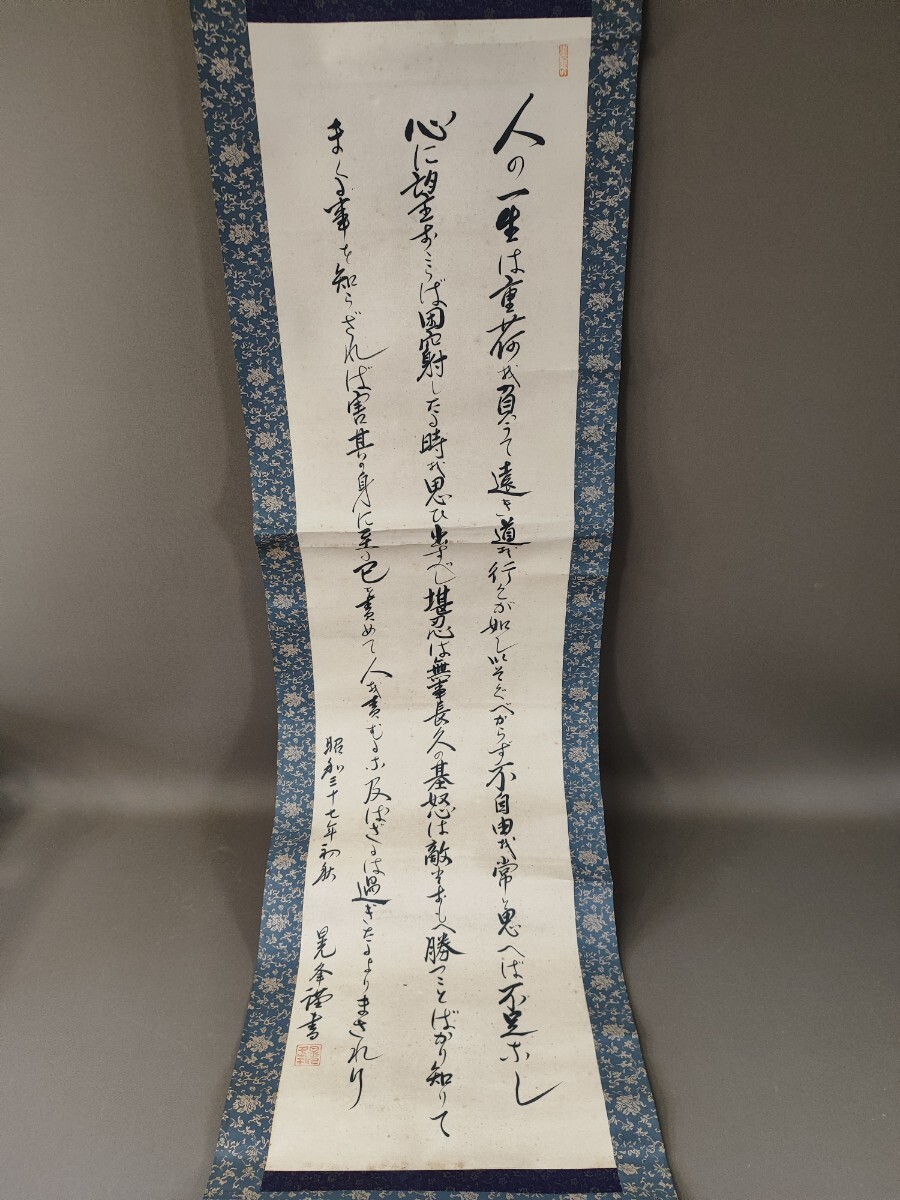 人の一生は重荷を負うて遠き道を行くが如しいそぐべからず不自由を常と思へば不足なし
心に望おこらば困窮したる時を思ひ出すべし堪忍は無事長久の基怒は敵とおもへ勝つことばかり知りて
まくる事を知らざれば害其の身に至る己を責めて人を責むるな及ばざるは過ぎたるよりまされり
昭和三十七年初秋
晃峯謹書